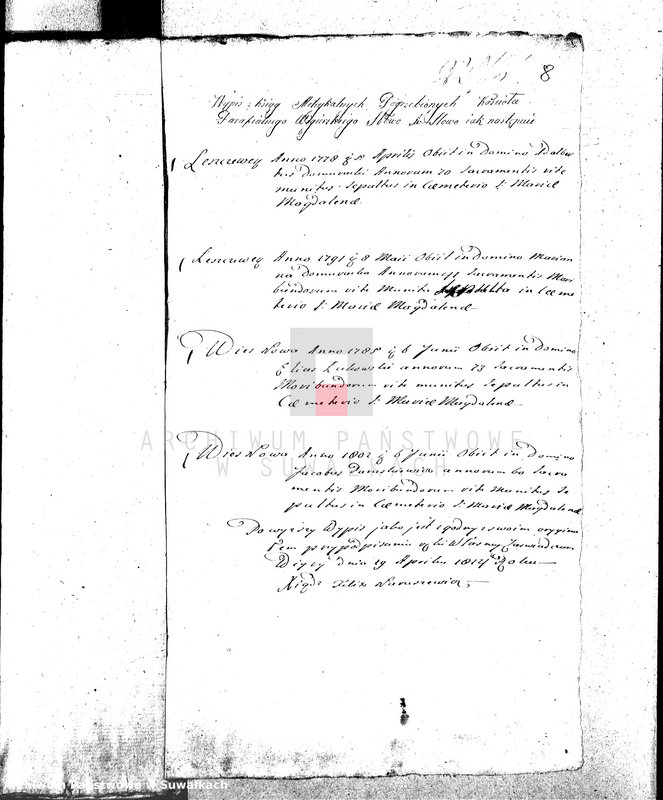 8
Wypis z Xiąg Metrykalnych Pogrzebionych Kościoła
Parafialnego Słowo w Słowo iak następuie
Leszczewey Anno 1778 5 Aprilis Obiit in Domino Adalber
tus Annorum 70 Sacramentis rite
munitus Sepultus in Cæmeterio S: Mariæ
Magdalenæ
Leszczewey Anno 1791 8 Maii Obiit in domino Marian
na Annorum Sacramentis Mori
bundorum rite Munita Sepulta in Cæme
terio S: Mariæ Magdalenæ
Wies Nowa Anno 1785 6 Junii Obiit in Domino
Elias Zukowski annorum 73 Sacramentis
Moribundorum rite munitus Sepultus in
Cæmeterio S: Mariæ Magdalenæ
Wies Nowa Anno 1802 6 Junii Obiit in Domino
Jacobus annorum 60 Sacra
mentis Moribundorum rite Munitus Se
pultus in Cæmeterio S: Mariæ Magdalenæ
Powyższy Wypis jako jest zgodny z swoim orygina
łem przy podpisaniu ręki Własney Zaświadczam
dnia 19 Aprilis Roku
Xiądz Felix Naruszewicz
ARCHIWUM PAŃSTWOWE
W SUWAŁKACH
Państwowe w Suwałkach